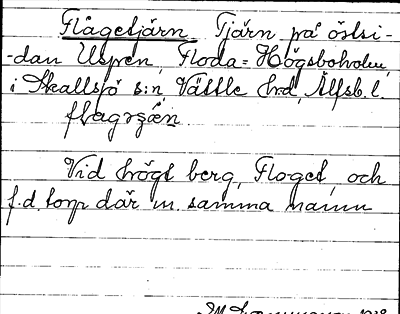 Flågetjärn Tjärn på östsi-
-dan Uspen, Floda=Högsboholm,
i Skallsjö s:n Vättle hrd, Älfsb. l.
flagrʒæn
Vid högt berg, Floget, och
f.d. torp där m. samma namn